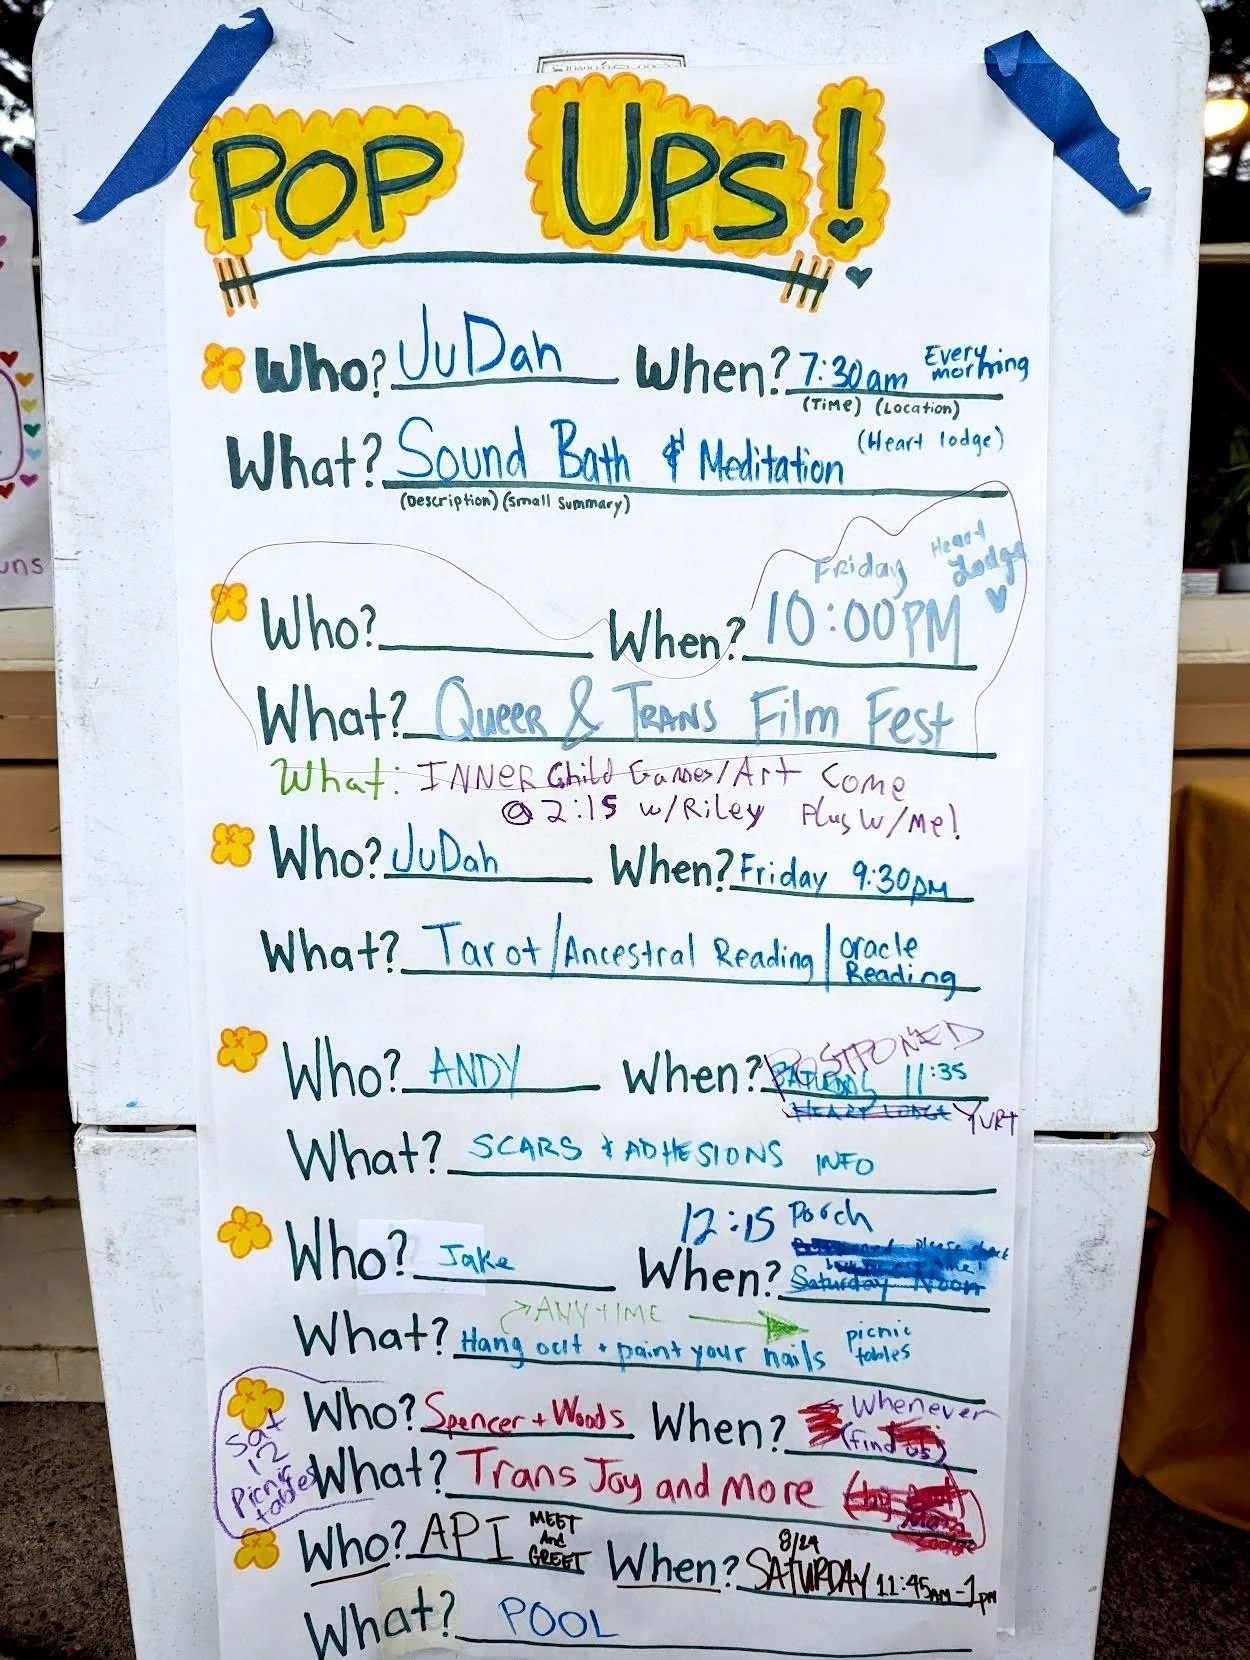 POP UPS!
Who? JuDah When? 7:30am Every morning
(Time) (Location)
What? Sound Bath & Meditation (Heart lodge)
(Description) (Small Summary)
Friday Heart Lodge
Who? When? 10:00PM
What? Queer & Trans Film Fest
What: INNER Child Games/Art Come
@ 2:15 w/Riley Play w/Me!
Who? JuDah When? Friday 9:30pm
What? Tarot/Ancestral Reading | oracle Reading
POSTPONED
Who? ANDY When? SATURDAY 11:35
HEART LODGE YURT
What? SCARS & ADHESIONS INFO
12:15 Porch
Who? Jake When? Saturday Noon
ANYTIME
What? Hang out + paint your nails picnic tables
Who? Spencer + Woods When? Whenever
(find us)
Sat 12 Picnic tables
What? Trans Joy and more
Who? API MEET and GREET When? 8/24 SATURDAY 11:45AM-1PM
What? POOL
uns